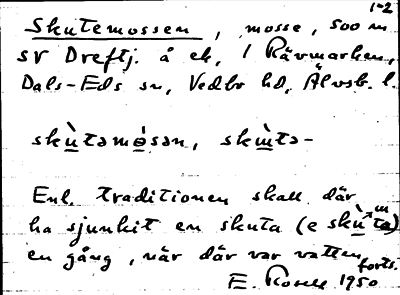 1-2
Skutemossen, mosse, 500 m
SV Dreftj. å ek, 1 Rävmarken,
Dals-Eds sn, Vedbo hd, Älvsb. l.
skùtəmósən, skùtə-
Enl. traditionen skall där
ha sjunkit en skuta (e skùta)
en gång, när där var vatten
forts.
E. Rosell 1950